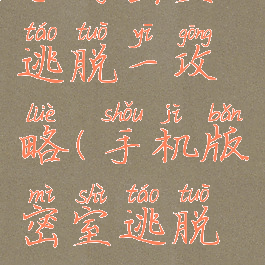 táo tuō yī gōng
逃脱一攻
lüè shǒu jī bǎn
略(手机版
mì shì táo tuō
密室逃脱